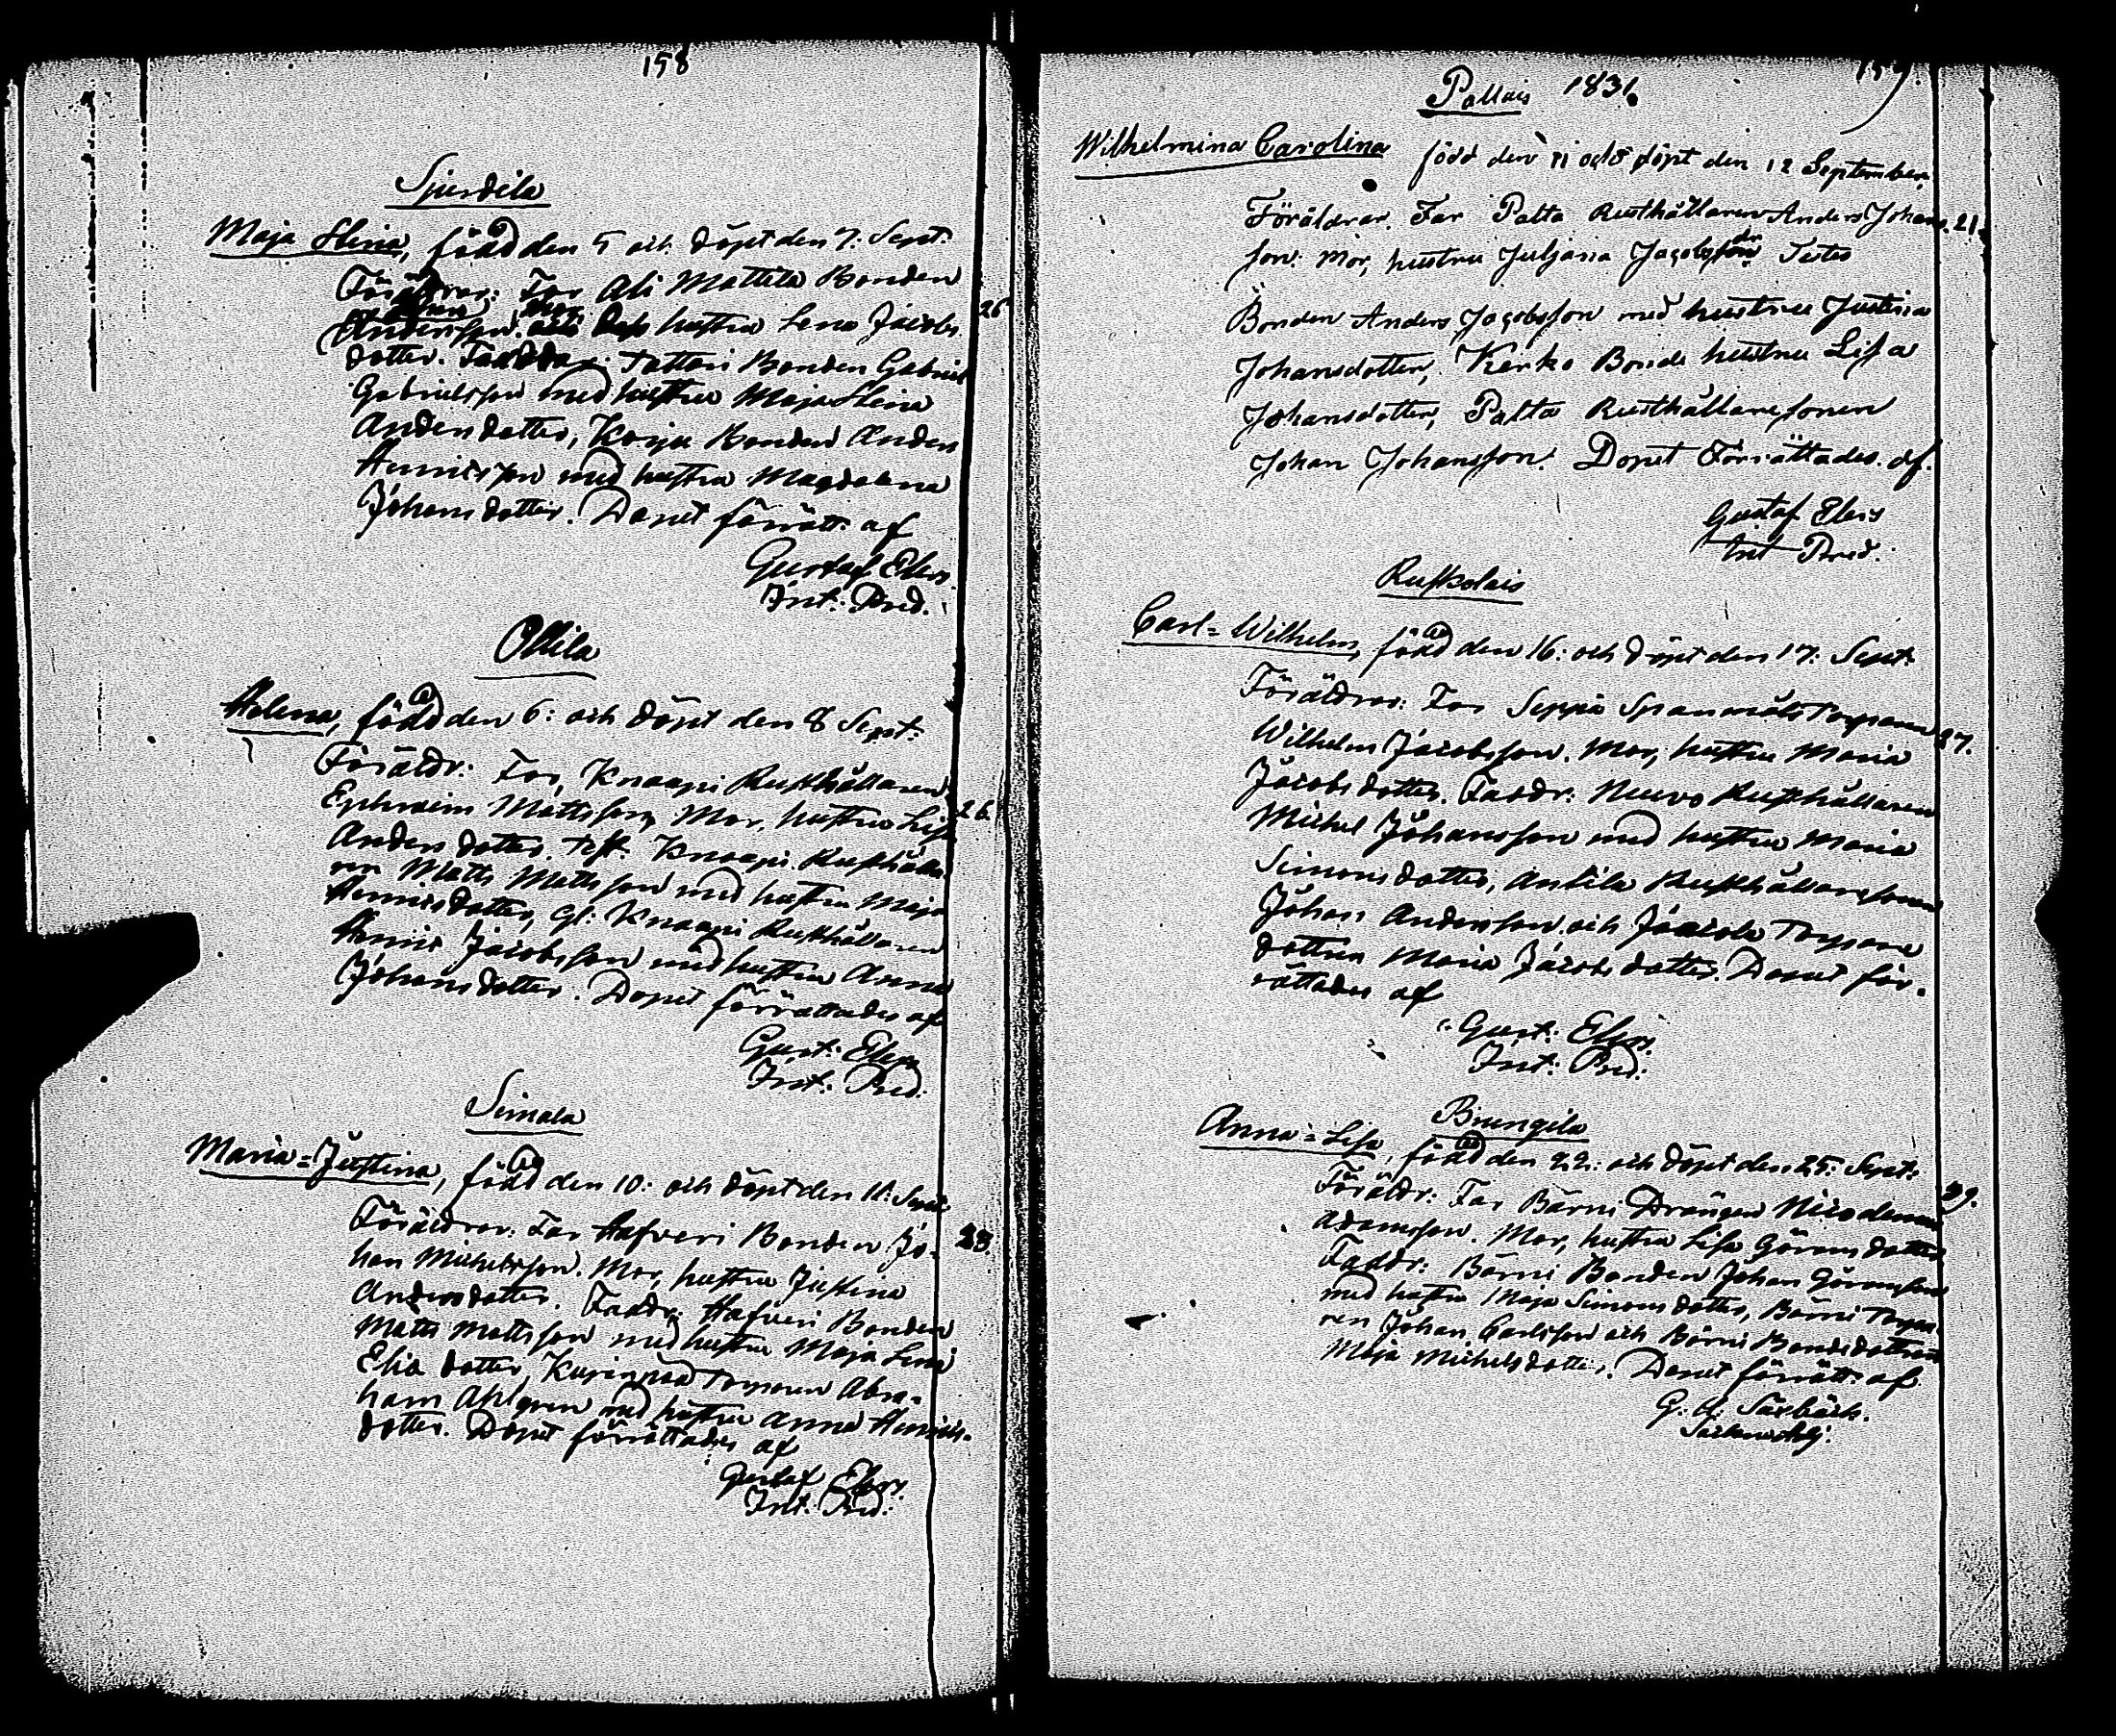 158
Sjundela
Maja Stina, född den 5 och döpt den 7: Sept.
Föräldrar: Far Ali Mattila Bonden
Andersson. Mor hustru Lena Jacobs
26
dotter. Faddrar: Tattari Bonden Gabriel
Gabrielsson med hustru Maja Stina
Andersdotter, Korju Bonden Anders
Henricsson med hustru Magdalena
Johansdotter. Doput förrätt. af
Gustaf Elers.
Int: Pred.
Ollila
Helena, född den 6: och döpt den 8 Sept:
Föräldr: Far, Knaapi Rusthållaren
Ephraim Mattsson, Mor, hustru Lisa
26
Andersdotter. Test. Knaapi Rusthålla
ren Matts Mattsson med hustru Maja
Henricsdotter, Gl: Knaapi Rusthållaren
Henric Jacobsson med hustru Anna
Johansdotter. Doput förrättades af
Gust: Elers
Int: Pred:
Simala
Maria=Justina, född den 10: och döpt den 11: Sept.
Föräldrar: Far Hafveri Bonden Jo-
28.
han Michelsson. Mor, hustru Justina
Andersdotter. Faddr: Hafveri Bonden
Matts Mattsson med hustru Maja Lena
Elia dotter, Torparen Abra-
ham Ahlgren med hustru Anna Henrics-
dotter. Doput förrättades af
Gustaf Elers.
Int: Pred:
159.
Pallais 1831.
Wilhelmina Carolina född den 11 och döpt den 12 September.
Föräldrar. Far Palta Rusthållaren Anders Johans-
21.
son. Mor, hustru Juljana Jacobsdr. Testes
Bonden Anders Jacobsson med hustru Justina
Johansdotter, Kerko Bonde hustru Lisa
Johansdotter, Palta Rusthållaresonen
Johan Johansson. Doput Förrättades af.
Gustaf Elers
Int Pred.
Ruskolais
Carl=Wilhelm, född den 16: och döpt den 17: Sept:
Föräldrar: Far Seppä Spanmåls Torparen
87.
Wilhelm Jacobsson. Mor, hustru Maria
Jacobsdotter. Faddr: Neuvo Rusthållaren
Michel Johansson med hustru Maria
Simonsdotter, Antila Rusthållaresonen
Johan Andersson och Torpare
dottren Maria Jacobsdotter. Doput för-
rättades af
Gust: Elers.
Int: Pred:
Biungila
Anna=Lisa, född den 22: och döpt den 25: Sept:
Föräldr: Far Bärni Drängen Nicodemus
39.
Adamsson. Mor, hustru Lisa Göransdotter
Faddr: Bärni Bonden Johan Göransson
med hustru Maja Simonsdotter, Bärni Torpa-
ren Johan Carlsson och Bärni Bondedottren
Maja Michelsdotter. Doput förrätt: af